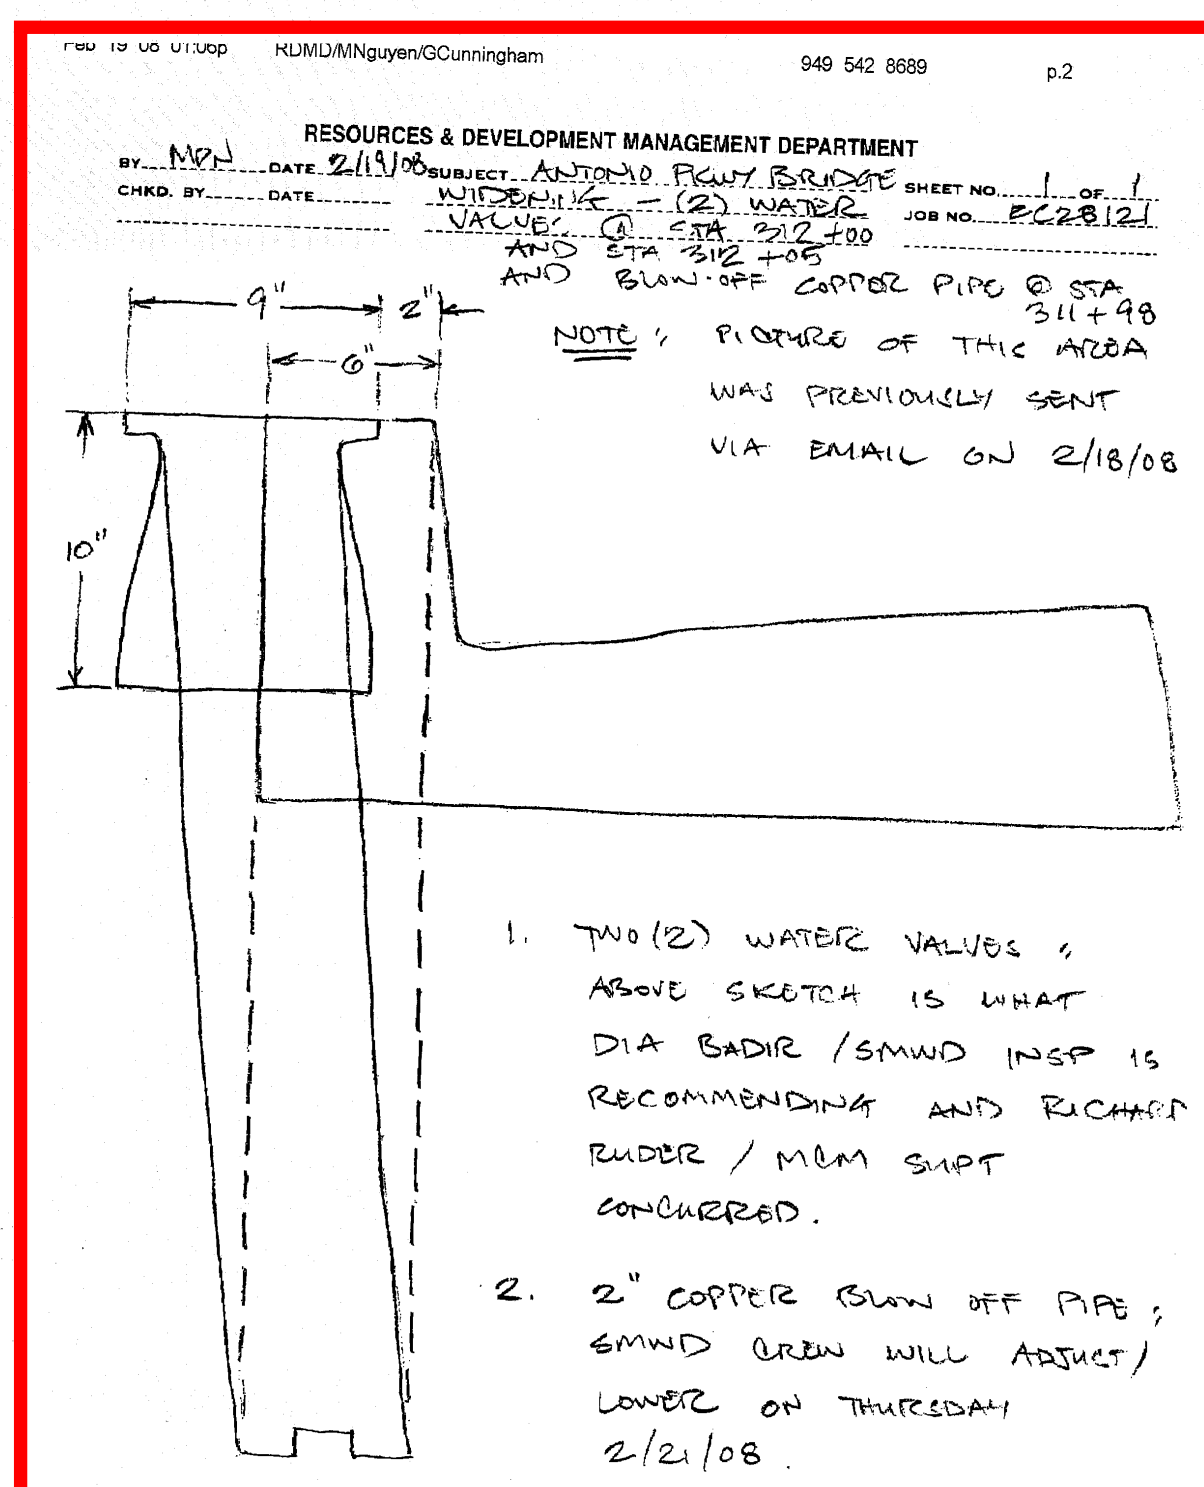 Feb 19 08 01:06p RDMD/MNguyen/GCunningham 949 542 8689 p.2
RESOURCES & DEVELOPMENT MANAGEMENT DEPARTMENT
BY MPN DATE 2/19/08 SUBJECT ANTONIO PKWY BRIDGE SHEET NO. 1 OF 1
CHKD. BY DATE WIDENING - (2) WATER JOB NO. EC28121
VALVES @ STA 312 +00
AND STA 312 +05
AND BLOW-OFF COPPER PIPE @ STA
311+98
9" 2"
6"
10"
NOTE: PICTURE OF THIS AREA
WAS PREVIOUSLY SENT
VIA EMAIL ON 2/18/08
1. TWO (2) WATER VALVES:
ABOVE SKETCH IS WHAT
DIA BADIR / SMWD INSP IS
RECOMMENDING AND RICHARD
RUDER / MCM SUPT
CONCURRED.
2. 2" COPPER BLOW OFF PIPE:
SMWD CREW WILL ADJUST/
LOWER ON THURSDAY
2/21/08.